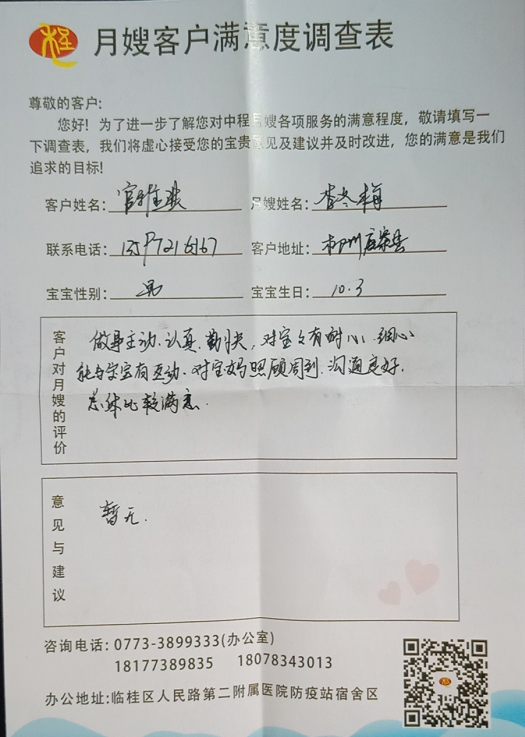 月嫂客户满意度调查表
尊敬的客户:
您好! 为了进一步了解您对中程月嫂各项服务的满意程度, 敬请填写一
下调查表, 我们将虚心接受您的宝贵意见及建议并及时改进, 您的满意是我们
追求的目标!
客户姓名: 月嫂姓名: 李冬梅
联系电话: 客户地址: 柳州
宝宝性别: 男 宝宝生日: 10.3
客户对月嫂的评价
做事主动、认真、勤快, 对宝宝有耐心、细心
能与宝宝有互动. 对宝妈照顾周到. 沟通良好.
总体比较满意.
意见与建议
暂无.
咨询电话: 0773-3899333(办公室)
18177389835 18078343013
办公地址: 临桂区人民路第二附属医院防疫站宿舍区